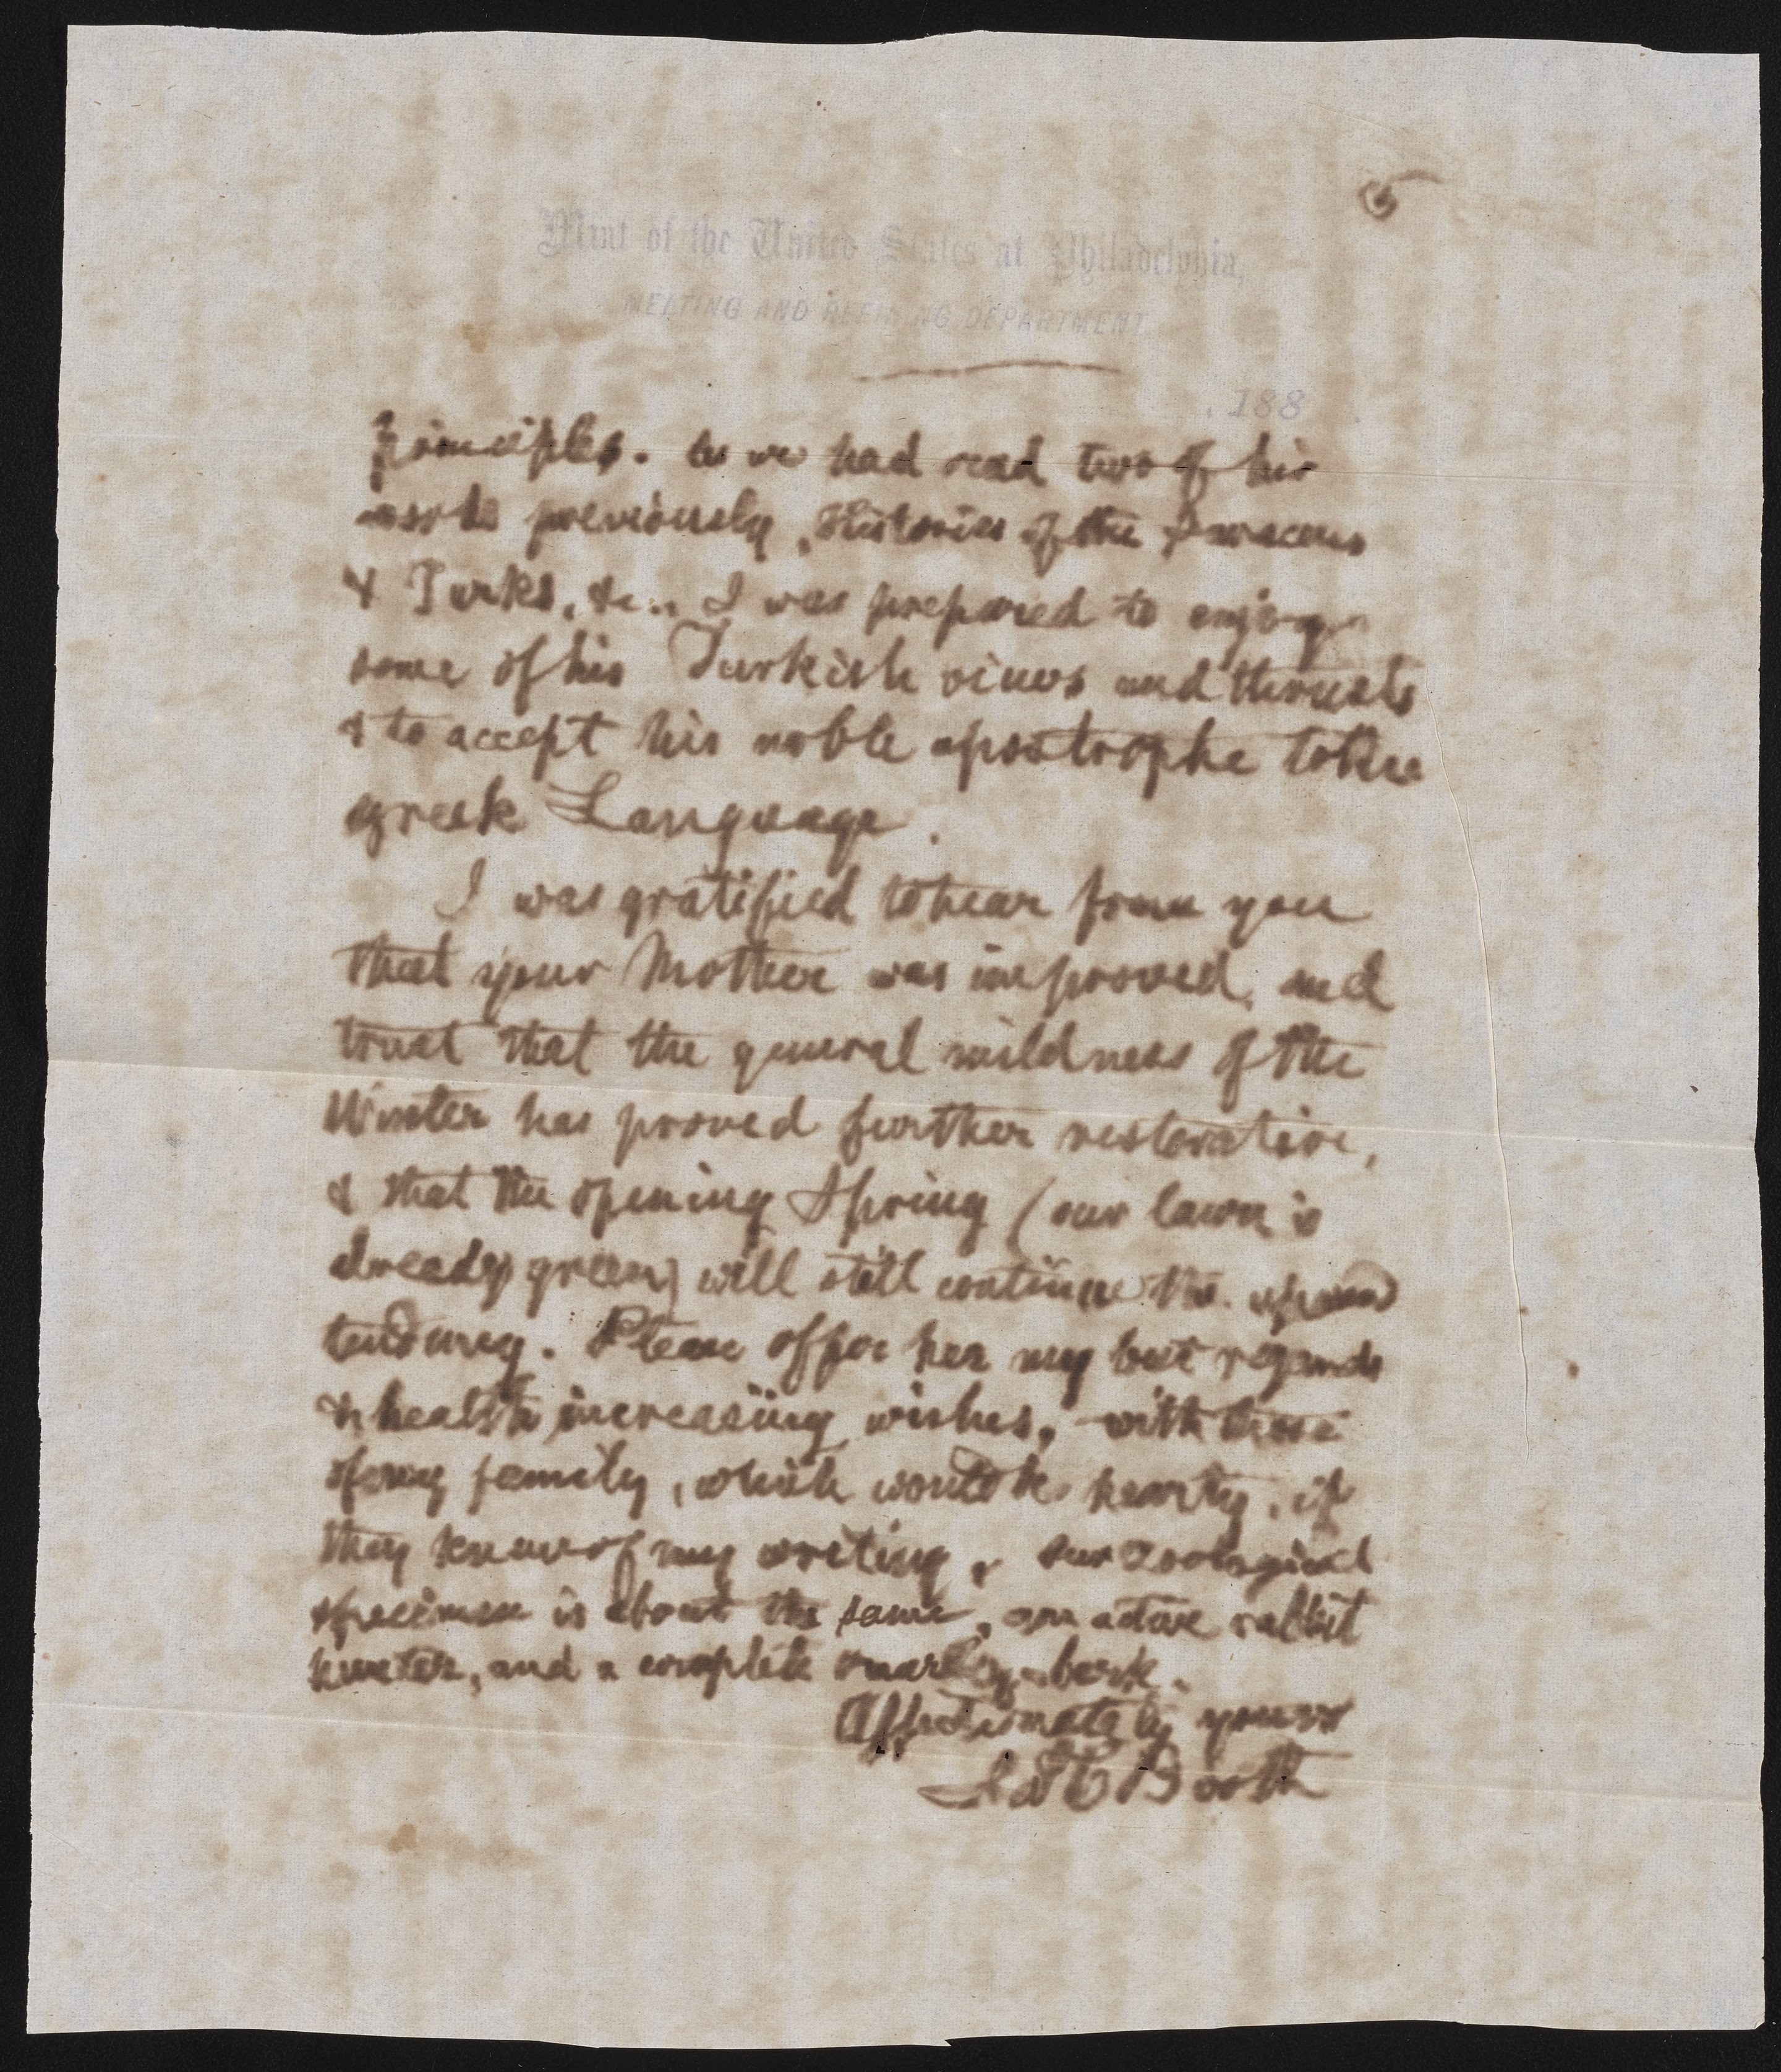 5
Mint of the United States at Philadelphia,
MELTING AND REFINING DEPARTMENT.
188
principles. As we had read two of his
works previously, Histories of the Saracens
& Turks, &c., I was prepared to enjoy
some of his Turkish views and thrusts
& to accept his noble apostrophe to the
greek Language.
I was gratified to hear from you
that your Mother was improved, and
trust that the general mildness of the
Winter has proved further restorative,
& that the opening Spring (our lawn is
already green) will still continue the upward
tendency. Please offer her my best regards
& health increasing wishes, with those
of my family, which would be hearty, if
they knew of my writing. Our zoological
specimen is about the same, an active rabbit
hunter, and a complete bark.
Affectionately yours
Jas C Booth